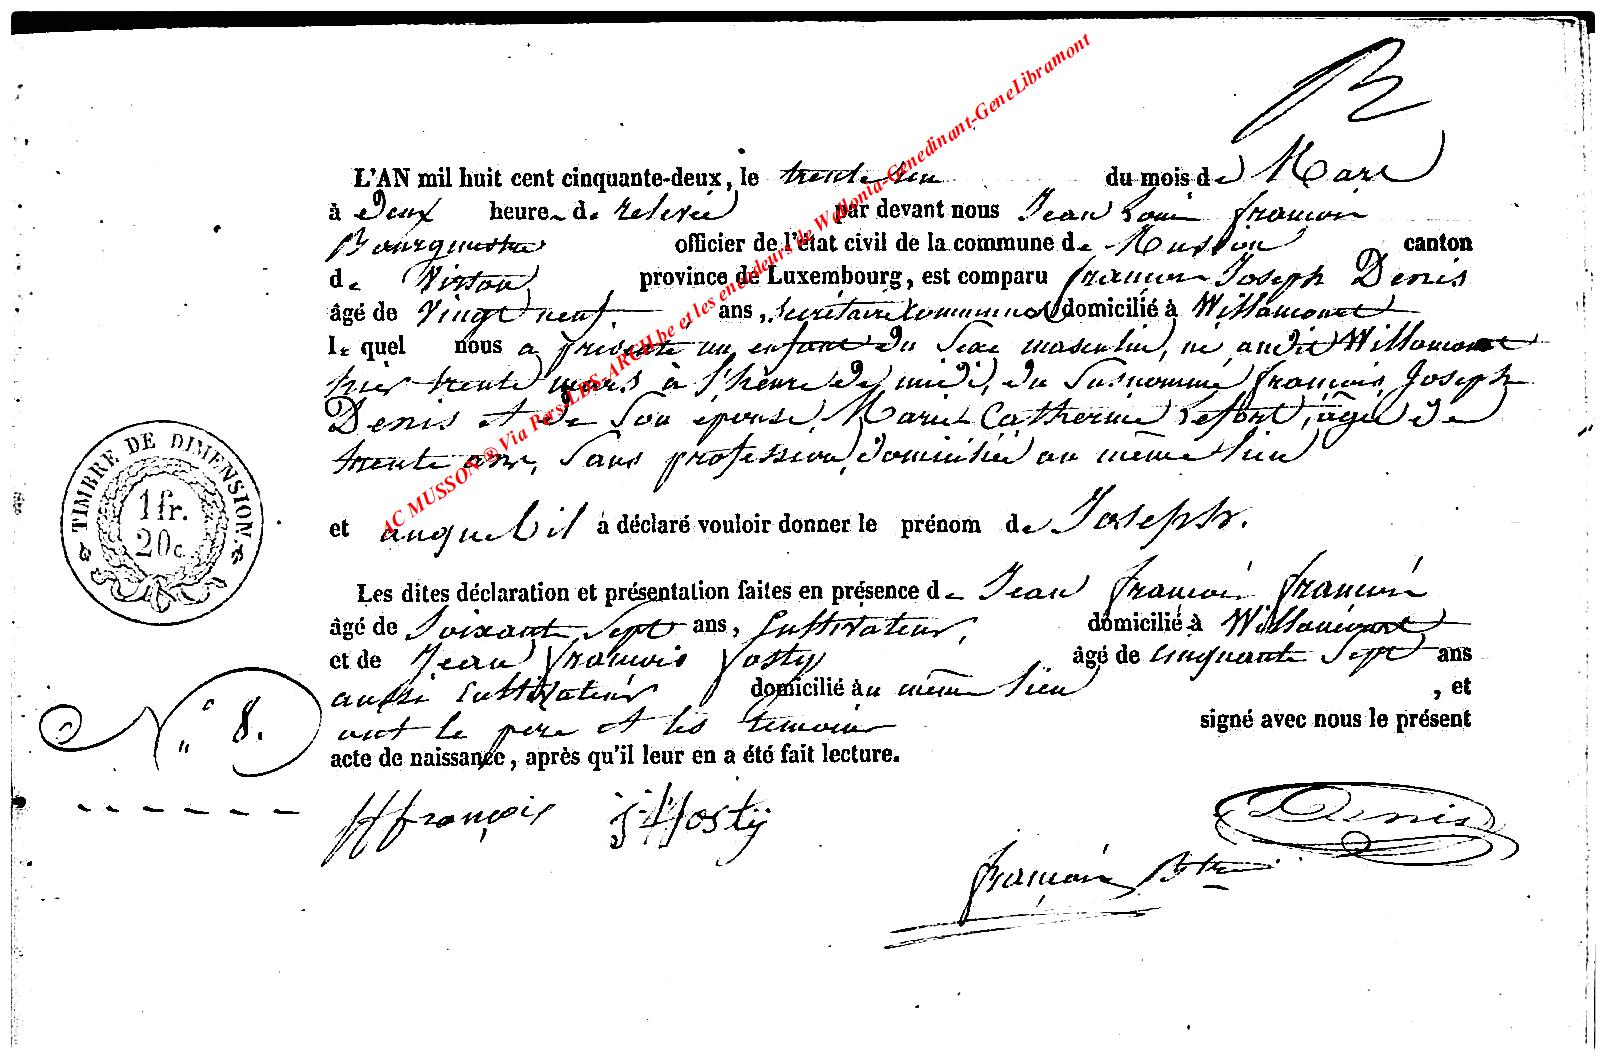 L'AN mil huit cent cinquante-deux, le trente un du mois de Mars
à Deux heures de relevée par devant nous Jean Louis françois
Bourgmestre officier de l'état civil de la commune de Musson canton
de Virton province de Luxembourg, est comparu françois Joseph Denis
âgé de Vingt neuf ans, Secrétaire Communal domicilié à Willancourt
lequel nous a présenté un enfant du Sexe masculin, né audit Willancourt
hier trente mars à l'heure de midi, du Susnommé françois Joseph
Denis et de Son épouse Marie Catherine Lefort, âgée de
trente ans, Sans profession, domiciliée au même lieu
et auquel il a déclaré vouloir donner le prénom de Joseph.
Les dites déclaration et présentation faites en présence de Jean françois françois
âgé de Soixante Sept ans, Cultivateur, domicilié à Willancourt
et de Jean françois Josty âgé de cinquante Sept ans
aussi Cultivateur domicilié au même lieu, et
N° 8.
ont le père et les témoins signé avec nous le présent
acte de naissance, après qu'il leur en a été fait lecture.
TIMBRE DE DIMENSION.
1 fr.
20 c.
françois Josty Denis
françois
AC MUSSON @ Via Pers-LDS-ARCH.be et les encodeurs de Wallonia-Genedinant-GeneLibramont